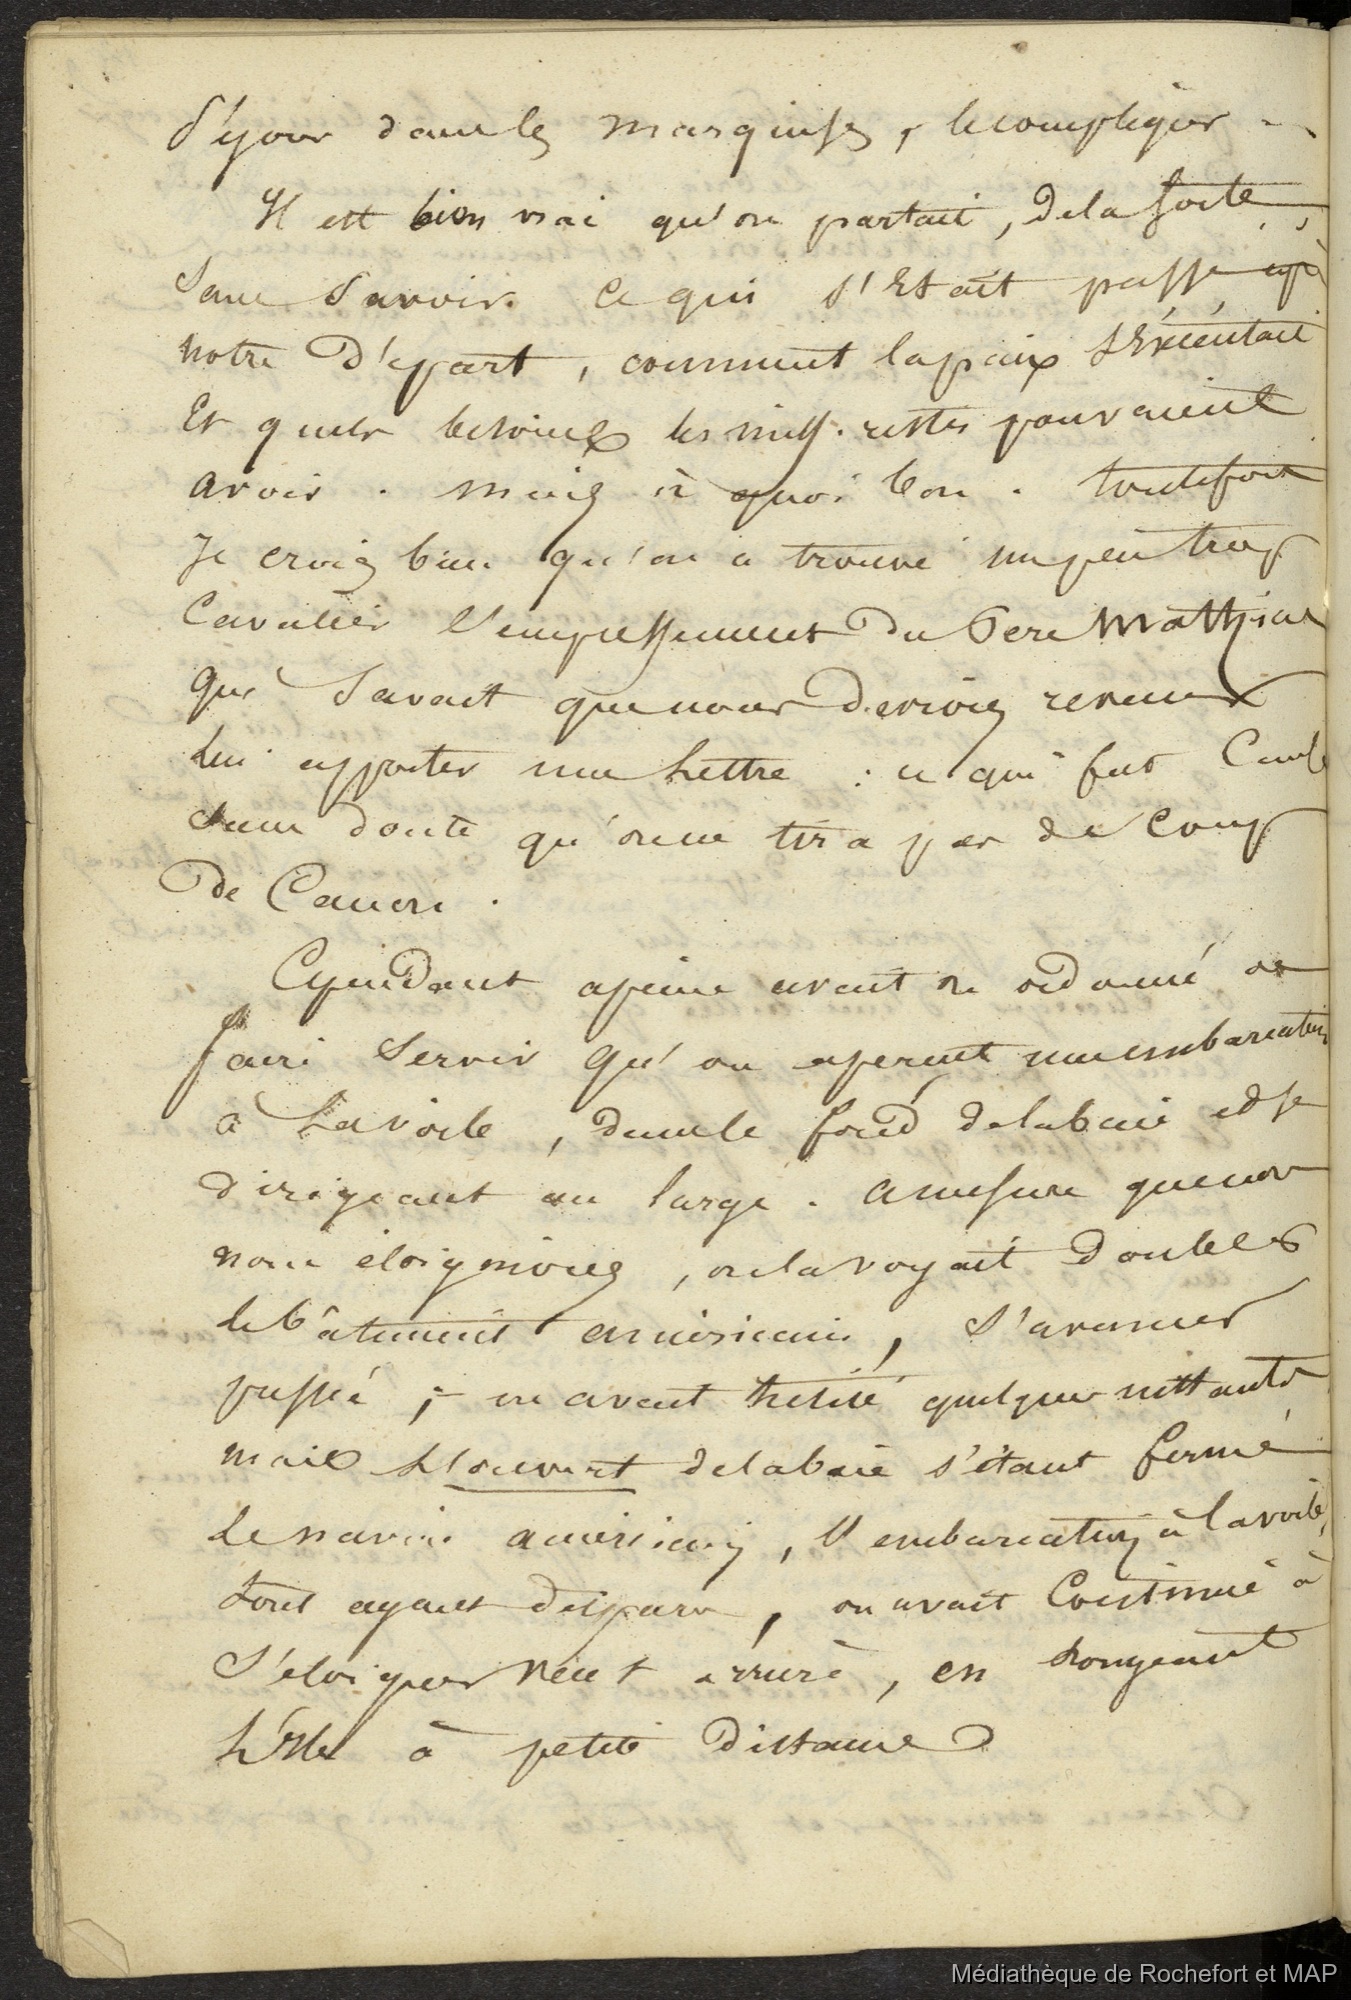 Séjour dans les marquises, le compliquer
Il est bien vrai qu'on partait, de la sorte,
Sans Savoir ce qui s'Etait passé
notre D'epart, comment la paix s'Exécutait
Et quels besoins les miss. restés pouvaient
avoir. mais à quoi bon. toutefois
Je crois bien qu'on a trouvé un peu trop
Cavalier l'empressement du Pere Mathias
qui Savait que nous Devions revenir
lui apporter une Lettre : ce qui fut Cause
sans doute qu'on ne tira pas de Coup
De Canon.
Cependant apeine avait on ordonné de
faire Servir qu'on aperçut une embarcation
à La voile, dans le fond de la baie et se
dirigeant au large. a mesure que nous
nous éloignions, on la voyait Doubler
le bâtiment américain, s'avancer
; on avait hésité quelques instants
mais L'ouvert de la baie s'étant fermé
Le navire américain, l'embarcation à la voile,
tout ayant Disparu, on avait Continué à
S'eloigner vent arrière, en Longeant
L'Ile à petite Distance
Médiathèque de Rochefort et MAP